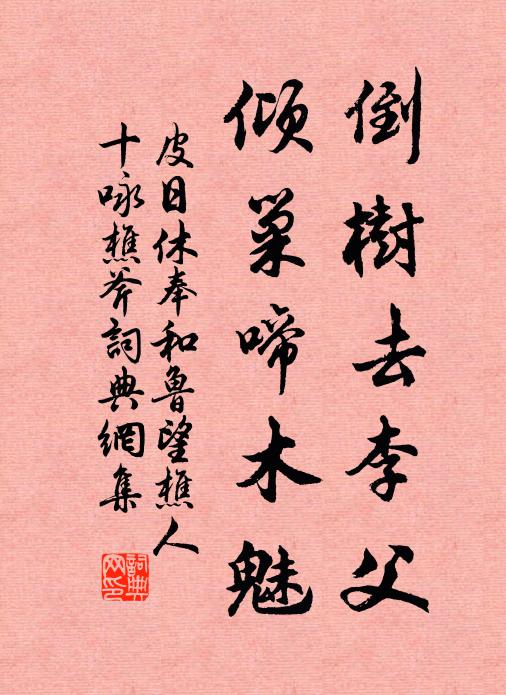 倒樹去李父
傾巢啼木魅
皮日休奉和魯望樵人
十咏樵斧詞典網集
詞典网印